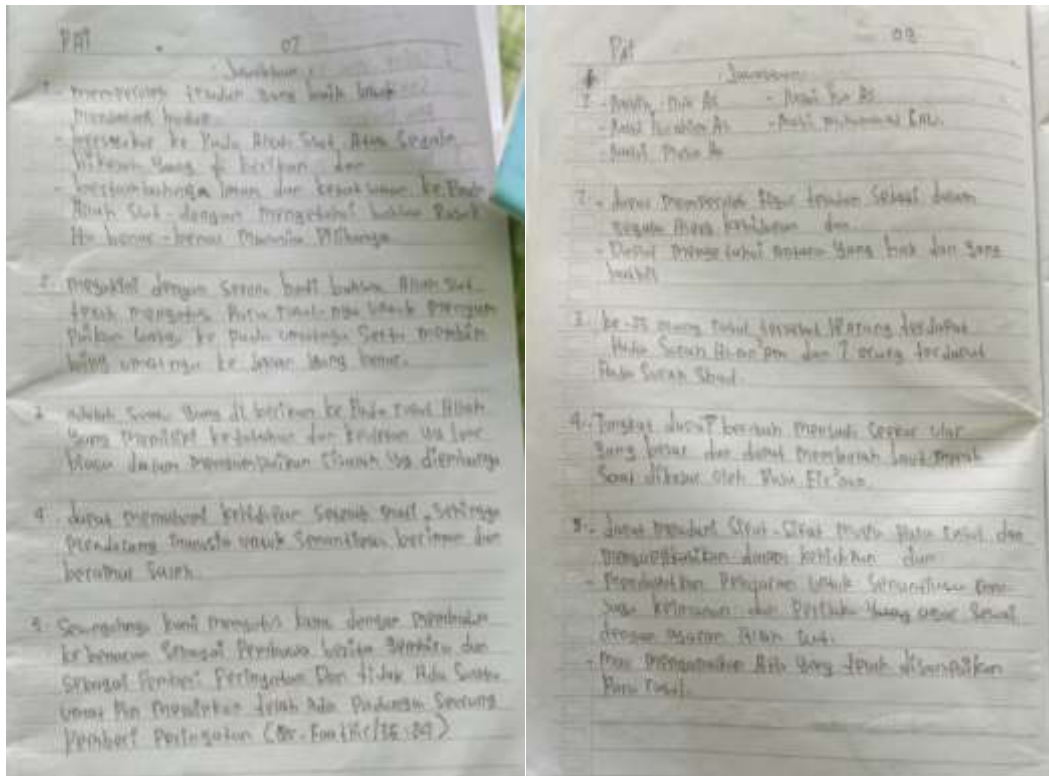 PAI 07
Jawaban
1. - memperoleh teladan yang baik untuk
menjalani hidup.
- bersyukur ke Pada Allah Swt. Atas Segala
nikmat yang di berikan dan
- bertambahnya Iman dan ketakwaan ke Pada
Allah Swt. dengan mengetahui bahwa Rasul
itu benar-benar manusia Pilihanya
2. meyakini dengan Sepenuh hati bahwa Allah Swt.
telah mengutus Para rasul-nya untuk menyam
paikan wahyu ke pada umatnya Serta membim
bing umatnya ke jalan yang benar.
3. adalah yang di berikan ke Pada rasul Allah
yang memiliki kelebihan dan luar
biasa dalam menyampaikan risalah yg diembannya
4. dapat memahami kehidupan Sehingga
manusia untuk Senantiasa beriman dan
beramal Saleh.
5. Sesungguhnya kami mengutus kamu dengan membawa
kebenaran Sebagai Pembawa berita gembira dan
Sebagai Pemberi Peringatan Dan tidak Ada Suatu
umat Pun melainkan telah Ada Padanya Seorang
Pemberi Peringatan (Qs. Faathir/35:24)
PAI 08
Jawaban
1. - Nabi Nuh As - Nabi Isa As
- Nabi Ibrahim As - Nabi Muhammad SAW.
- Nabi Musa As
2. - dapat memperoleh figur teladan Sejati dalam
segala kehidupan dan
- Dapat mengetahui antara yang baik dan yang
3. ke-25 orang rasul tersebut 18 orang terdapat
Pada Surah Al-an'am dan 7 orang terdapat
Pada Surah
4. Tongkat dapat berubah menjadi Seekor ular
yang besar dan dapat membelah laut merah
Saat dikejar oleh Fir'aun.
5. - dapat Sifat-Sifat mulia Para rasul dan
dalam kehidupan dan
- Pelajaran untuk Senantiasa men-
jaga keimanan dan Perilaku yang agar Sesuai
dengan ajaran Allah Swt.
- mau mengamalkan Apa yang telah disampaikan
Para rasul.